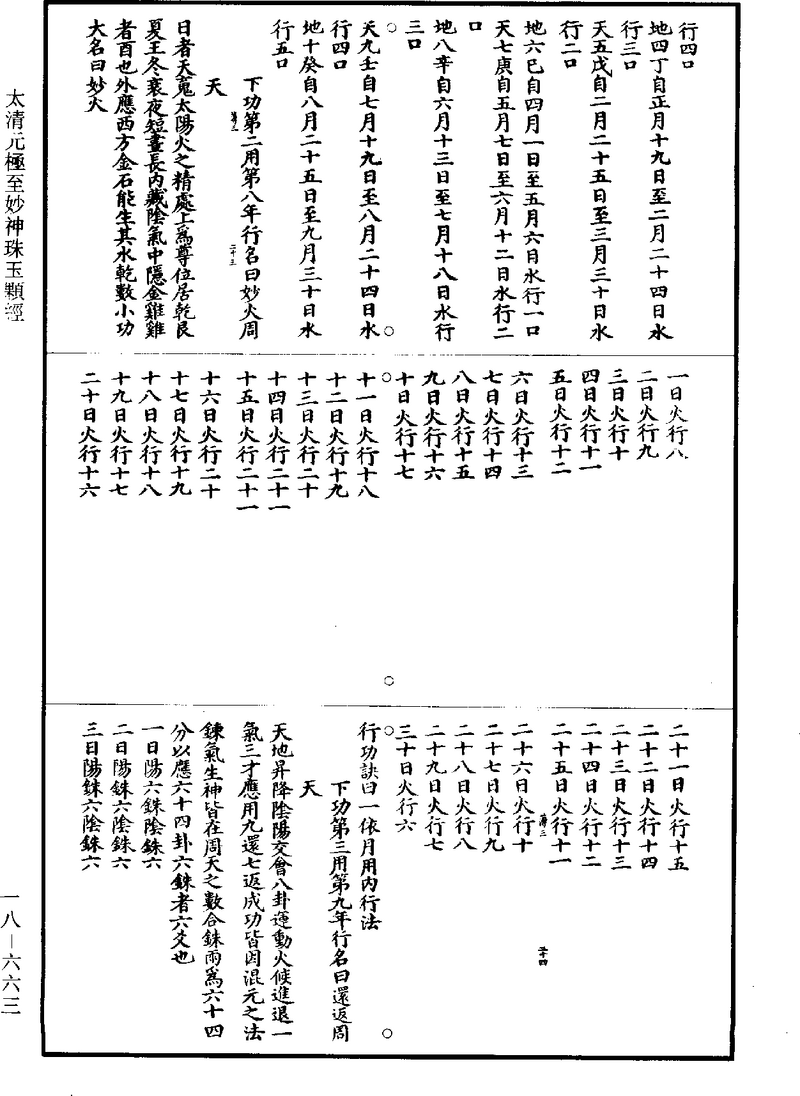 太清元極至妙神珠玉顆經
行四口
地四丁自正月十九日至二月二十四日水
行三口
天五戊自二月二十五日至三月三十日水
行二口
地六巳自四月一日至五月六日水行一口
天七庚自五月七日至六月十二日水行二
口
地八辛自六月十三日至七月十八日水行
三口
天九壬自七月十九日至八月二十四日水
行四口
地十癸自八月二十五日至九月三十日水
行五口
下功第二用第八年行名曰妙火周
天
日者天䰟太陽火之精處上爲尊位居乾艮
夏王冬衰夜短晝長內藏陰氣中隱金雞雞
者酉也外應西方金石能生其水乾數小功
大名曰妙火
一日火行八
二日火行九
三日火行十
四日火行十一
五日火行十二
六日火行十三
七日火行十四
八日火行十五
九日火行十六
十日火行十七
十一日火行十八
十二日火行十九
十三日火行二十
十四日火行二十一
十五日火行二十一
十六日火行二十
十七日火行十九
十八日火行十八
十九日火行十七
二十日火行十六
二十一日火行十五
二十二日火行十四
二十三日火行十三
二十四日火行十二
二十五日火行十一
二十六日火行十
二十七日火行九
二十八日火行八
二十九日火行七
三十日火行六
行功訣曰一依月用內行法
下功第三用第九年行名曰還返周
天
天地昇降陰陽交會八卦運動火候進退一
氣三才應用九還七返成功皆因混元之法
鍊氣生神皆在周天之數合銖兩爲六十四
分以應六十四卦六銖者六爻也
一日陽六銖陰銖六
二日陽銖六陰銖六
三日陽銖六陰銖六
一八－六六三